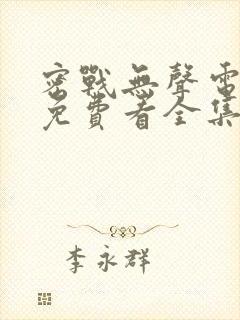 密戰無聲電
免費看全集
李永群